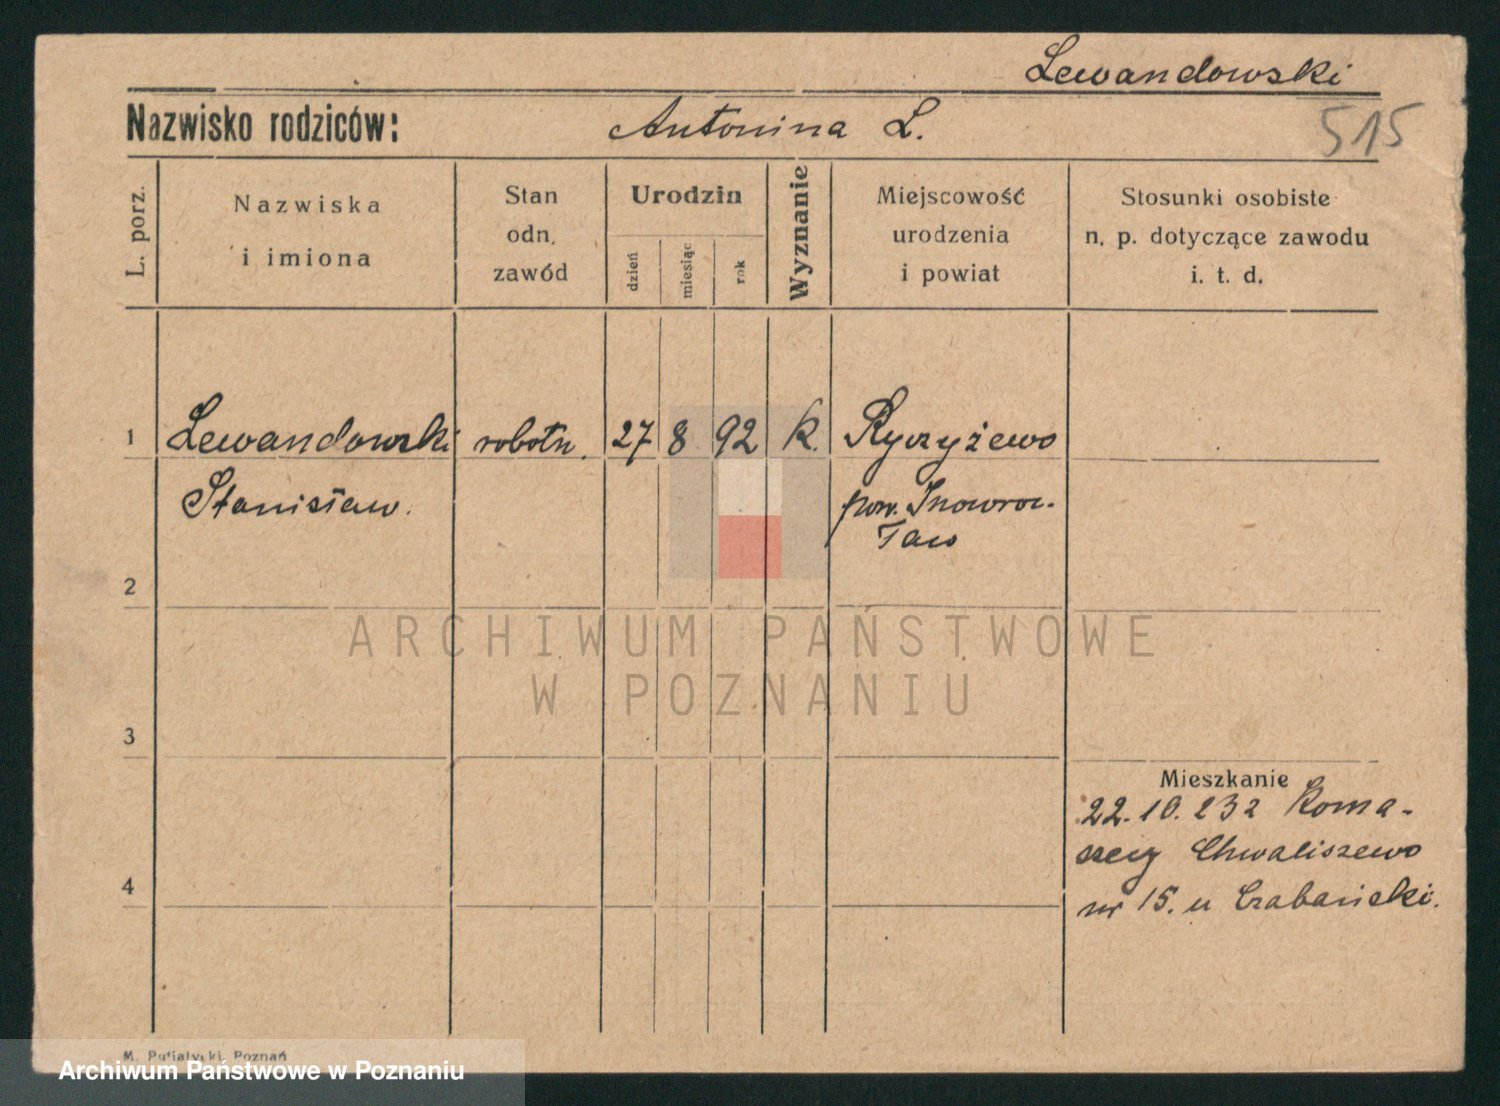 Lewandowski
Nazwisko rodziców: Antonina L.
515
L. porz.
Nazwiska
i imiona
Stan
odn.
zawód
Urodzin
dzień
miesiąc
rok
Wyznanie
Miejscowość
urodzenia
i powiat
Stosunki osobiste
n. p. dotyczące zawodu
i. t. d.
1 Lewandowski robotn. 27 8 92 k.
Stanisław.
pow. Inowroc-
ław
2
3
4
Mieszkanie
22.10.232 Koma-
Chwaliszewo
nr 15. u
ARCHIWUM PAŃSTWOWE
W POZNANIU
M. Putiatycki, Poznań
Archiwum Państwowe w Poznaniu